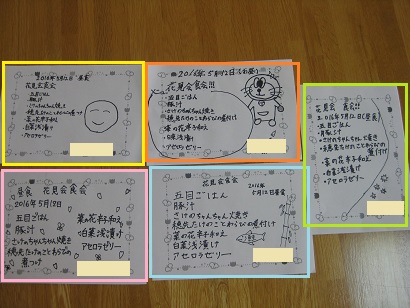 2016年5月12日 昼食
花見会食会
五目ごはん
豚汁
さけのちゃんちゃん焼き
穂先たけのことわらびの煮付
菜の花辛子和え
白菜浅漬け
アセロラゼリー
2016年5月12日(昼食)
花見会食会!!
五目ごはん
豚汁
さけのちゃんちゃん焼き
穂先たけのことわらびの煮付け
菜の花辛子和え
白菜浅漬け
アセロラゼリー
花見会 食会!!
2016年5月12日(昼食)
五目ごはん
豚汁
さけのちゃんちゃん焼き
穂先たけのことわらびの煮付け
菜の花辛子和え
白菜浅漬け
アセロラゼリー
昼食 花見会食会食
2016年5月12日
五目ごはん
豚汁
さけのちゃんちゃん焼き
穂先たけのことわらびの
煮つけ
菜の花辛子和え
白菜浅漬け
アセロラゼリー
花見会食会
2016年
5月12日昼食
五目ごはん
豚汁
さけのちゃんちゃん焼き
穂先たけのことわらびの煮付け
菜の花辛子和え
白菜浅漬け
アセロラゼリー